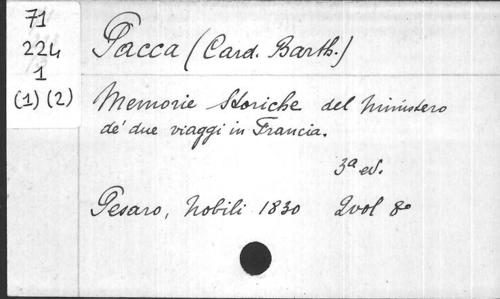 71
224
1
(1) (2)
Pacca (Card. Barth.)
Memorie Storiche del Ministero
de' due viaggi in Francia.
3a ed.
Pesaro, Nobili 1830 2vol 8o